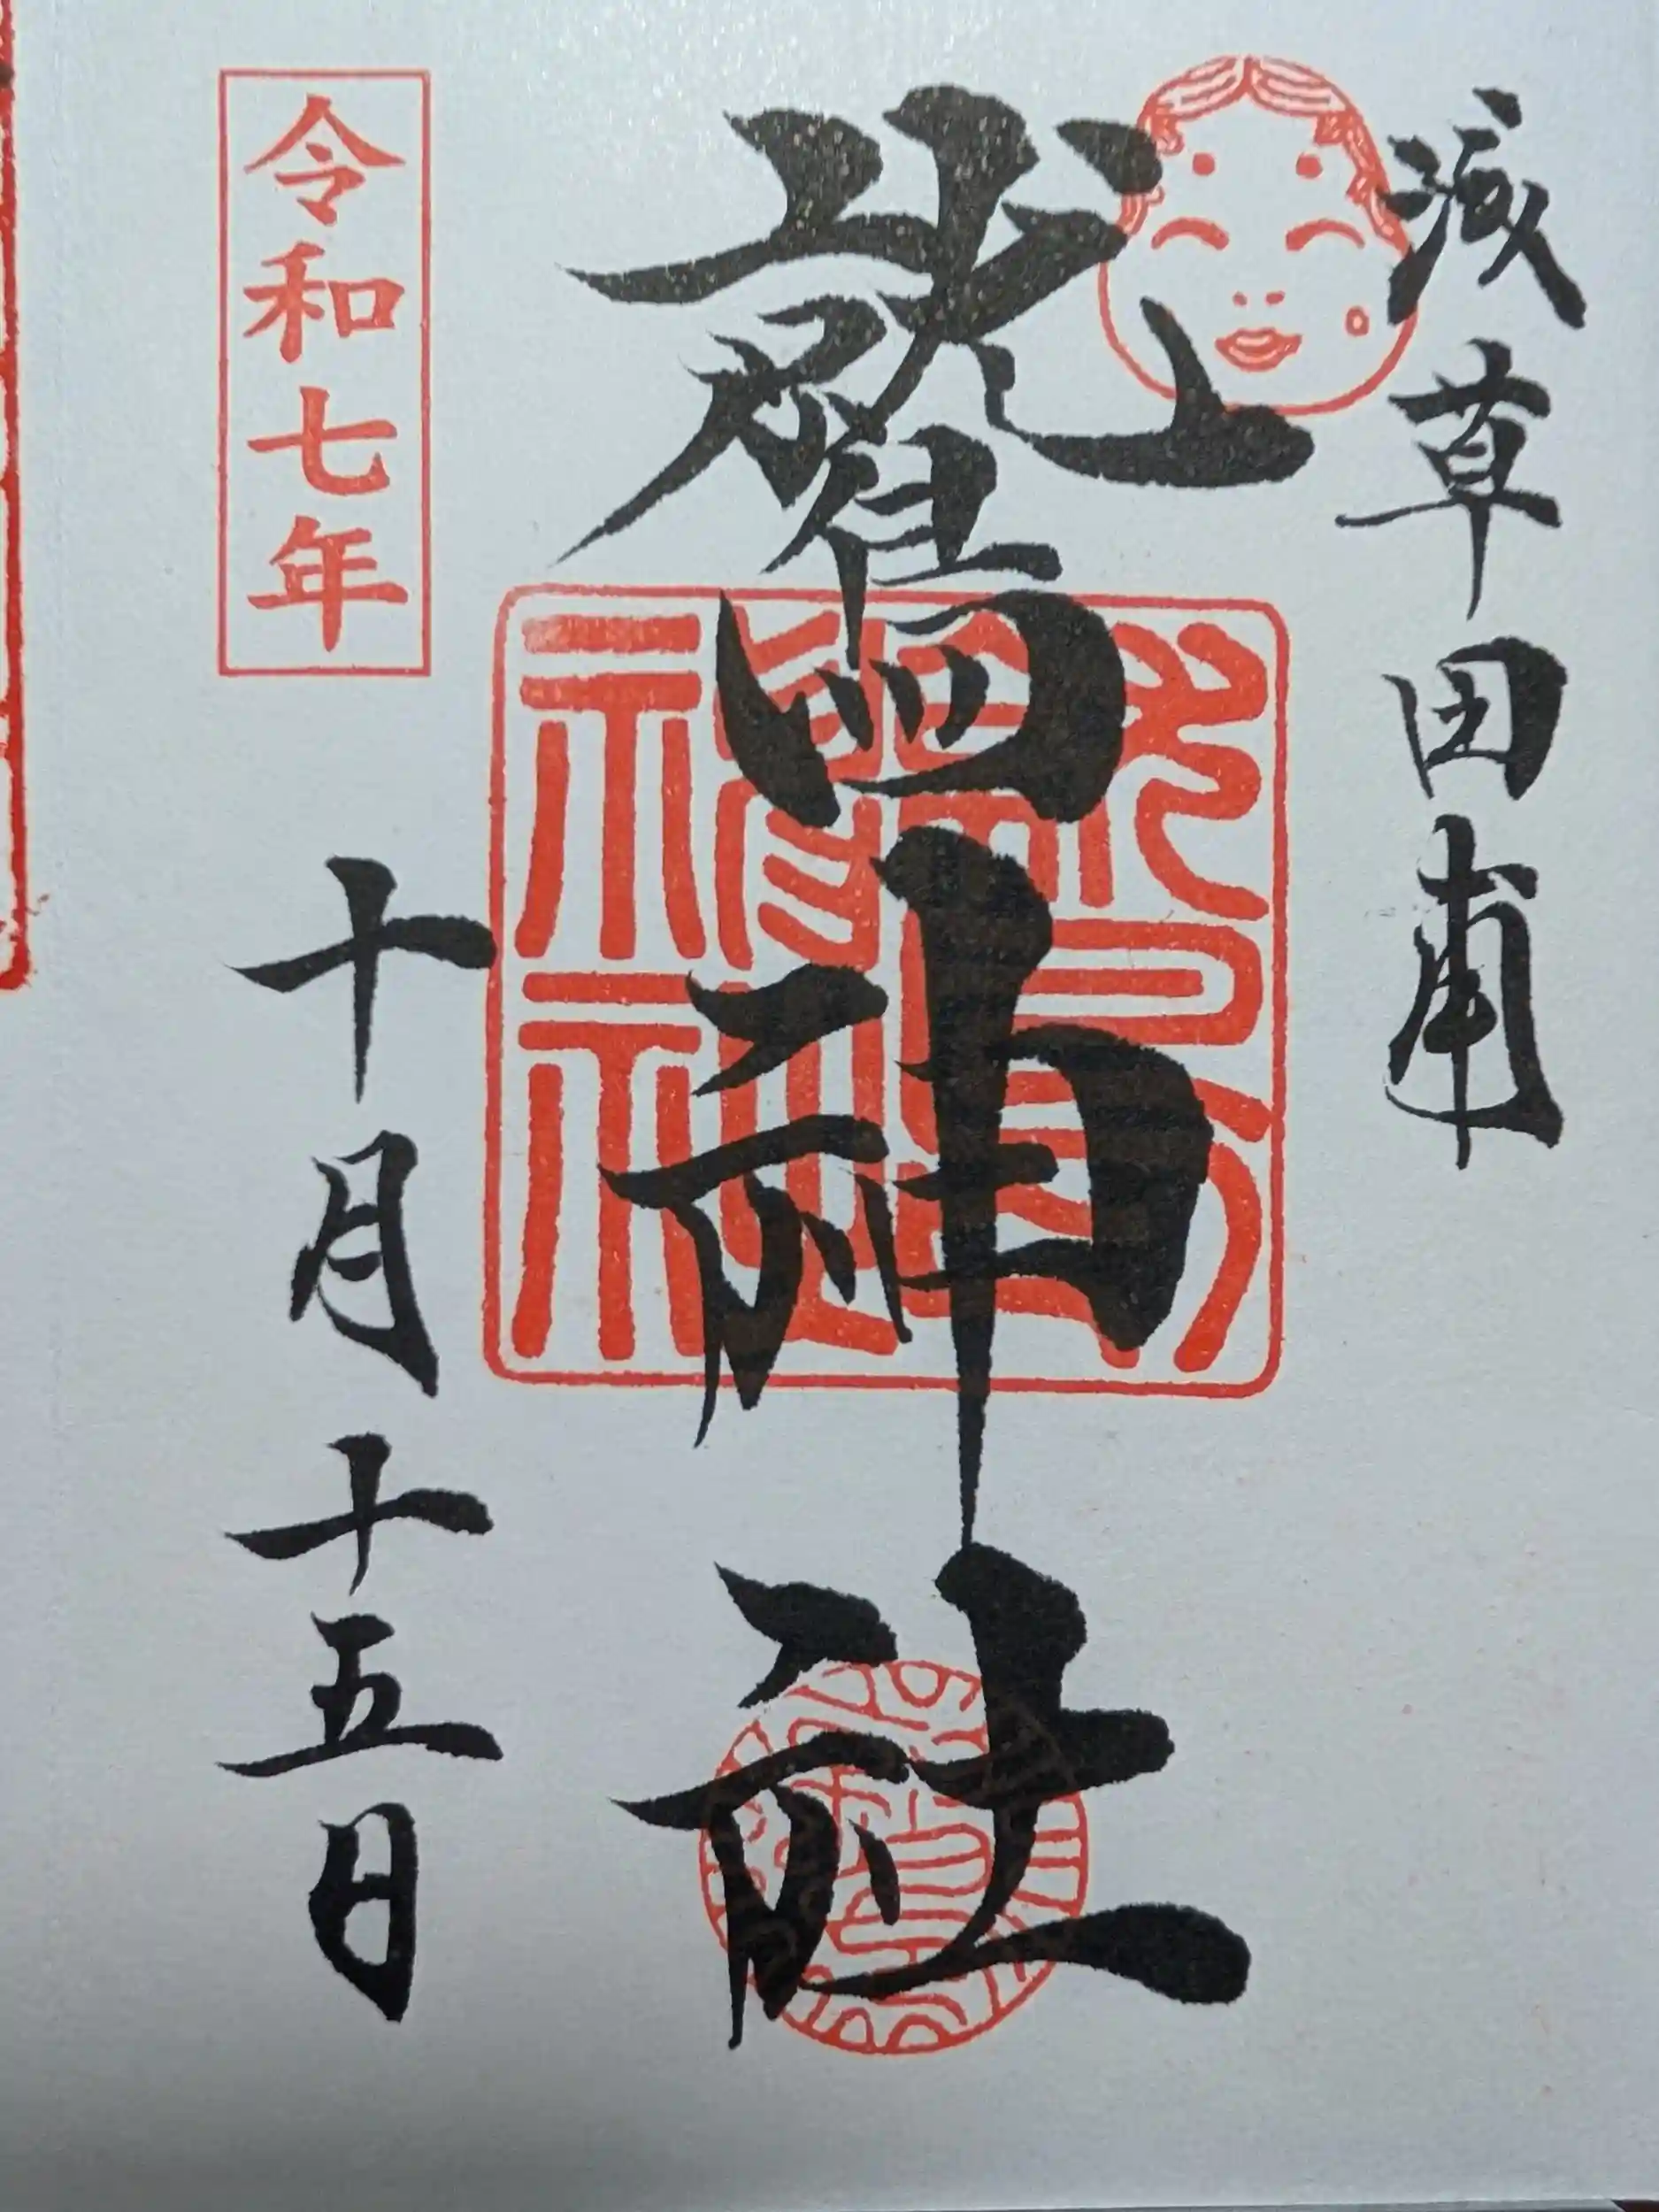 浅草田甫
鷲神社
令和七年
十月十五日